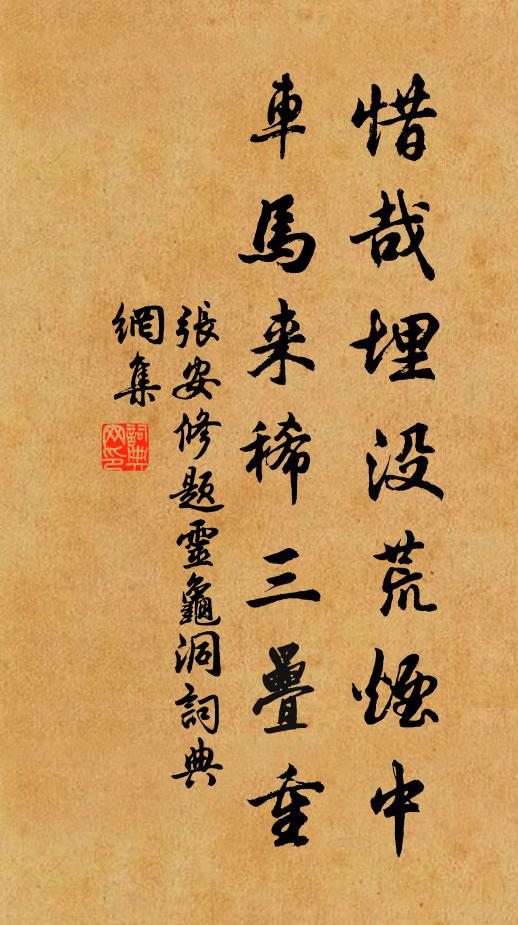 惜哉埋没荒煙中
車馬来稀三疊重
張安修題靈龜洞詞典
網集
詞典
网印